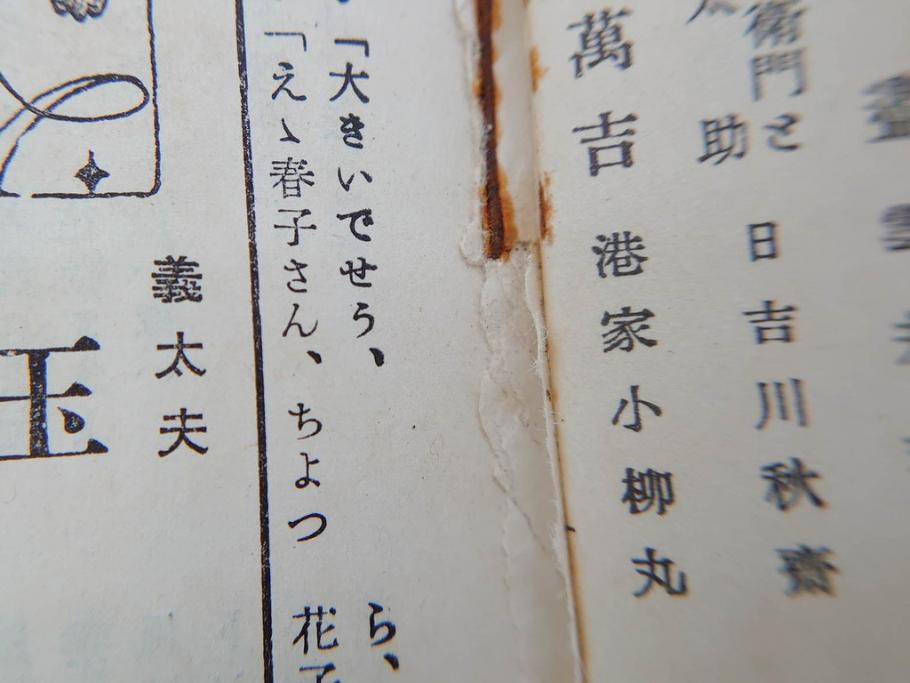 日吉川秋齋
衛門と
助
萬吉 港家小柳丸
「大きいでせう、
ら、
「えゝ春子さん、ちよつ
花子
義太夫
玉